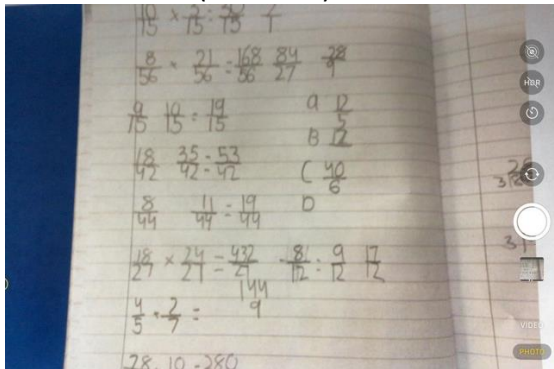 10/15 × 3/15 = 30/15 2/1
8/56 × 21/56 = 168/56 84/27 28/1
9/15 10/15 = 19/15 a 12/5
B 12
18/42 35/42 = 53/42 C 40/6
8/44 11/44 = 19/44 D
18/27 × 24/27 = 432/27 8/12 : 9/12 17/12
144/9
4/5 × 2/7 =
28 10 = 280
HDR
31
VIDEO
PHOTO